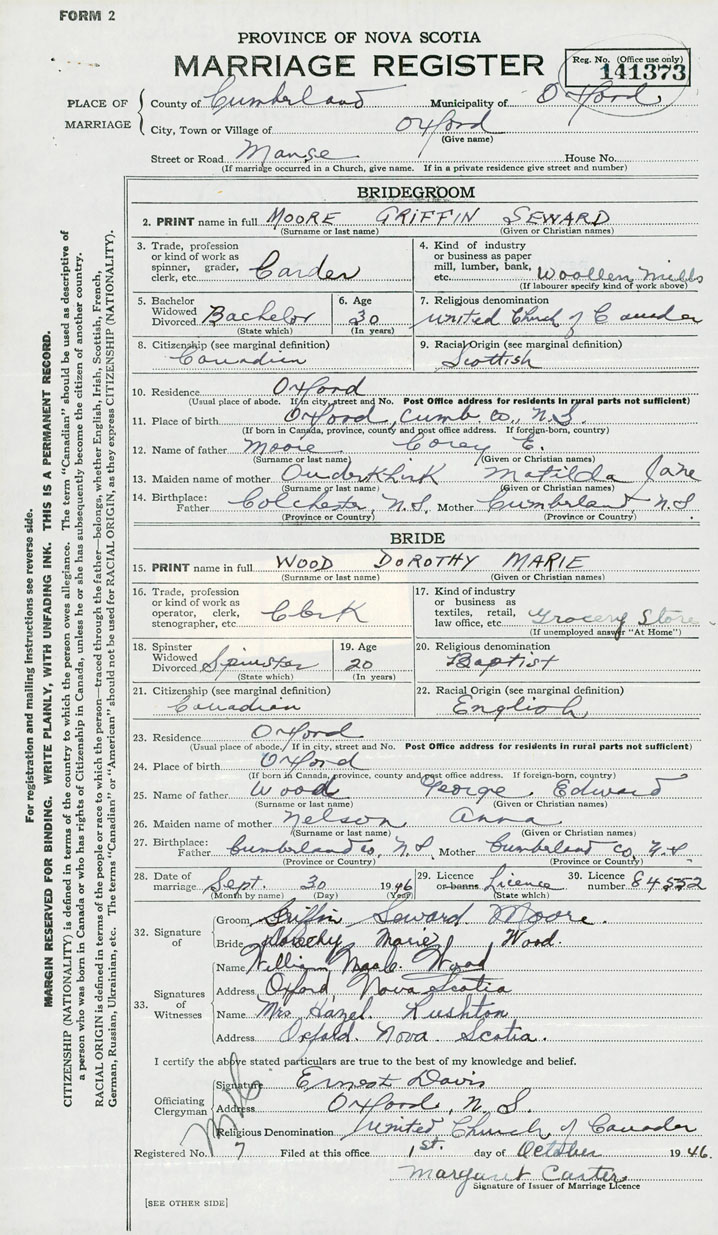 FORM 2
PROVINCE OF NOVA SCOTIA
MARRIAGE REGISTER
Reg. No. (Office use only)
141373
PLACE OF MARRIAGE
County of Cumberland Municipality of Oxford
City, Town or Village of Oxford
(Give name)
Street or Road Manse House No.
(If marriage occurred in a Church, give name. If in a private residence give street and number)
BRIDEGROOM
2. PRINT name in full MOORE GRIFFIN SEWARD
(Surname or last name) (Given or Christian names)
3. Trade, profession or kind of work as spinner, grader, clerk, etc. Carder
4. Kind of industry or business as paper mill, lumber, bank, etc. Woollen Mills
(If labourer specify kind of work above)
5. Bachelor Widowed Divorced Bachelor
(State which)
6. Age 30
(In years)
7. Religious denomination
United Church of Canada
8. Citizenship (see marginal definition)
Canadian
9. Racial Origin (see marginal definition)
Scottish
10. Residence Oxford
(Usual place of abode. If in city, street and No. Post Office address for residents in rural parts not sufficient)
11. Place of birth Oxford, Cumb. Co., N.S.
(If born in Canada, province, county and post office address. If foreign-born, country)
12. Name of father Moore Corey E.
(Surname or last name) (Given or Christian names)
13. Maiden name of mother Ouderkhirk Matilda Jane
(Surname or last name) (Given or Christian names)
14. Birthplace: Father Colchester, N.S. Mother Cumberland, N.S.
(Province or Country) (Province or Country)
BRIDE
15. PRINT name in full WOOD DOROTHY MARIE
(Surname or last name) (Given or Christian names)
16. Trade, profession or kind of work as operator, clerk, stenographer, etc. Clerk
17. Kind of industry or business as textiles, retail, law office, etc. Grocery Store
(If unemployed answer "At Home")
18. Spinster Widowed Divorced Spinster
(State which)
19. Age 20
(In years)
20. Religious denomination
Baptist
21. Citizenship (see marginal definition)
Canadian
22. Racial Origin (see marginal definition)
English
23. Residence Oxford
(Usual place of abode. If in city, street and No. Post Office address for residents in rural parts not sufficient)
24. Place of birth Oxford
(If born in Canada, province, county and post office address. If foreign-born, country)
25. Name of father Wood George Edward
(Surname or last name) (Given or Christian names)
26. Maiden name of mother Nelson Anna
(Surname or last name) (Given or Christian names)
27. Birthplace: Father Cumberland Co, N.S. Mother Cumberland Co, N.S
(Province or Country) (Province or Country)
28. Date of marriage Sept. 30 1946
(Month by name) (Day) (Year)
29. Licence or banns Licence
(State which)
30. Licence number 84552
32. Signature of
Groom Griffin Seward Moore.
Bride Dorothy Marie Wood.
33. Signatures of Witnesses
Name William Wood
Address Oxford Nova Scotia
Name Mrs Hazel Rushton
Address Oxford. Nova Scotia.
I certify the above stated particulars are true to the best of my knowledge and belief.
Officiating Clergyman
Signature Ernest Davis
Address Oxford, N.S.
Religious Denomination United Church of Canada
Registered No. 7 Filed at this office 1st. day of October 1946.
Margaret Carter
Signature of Issuer of Marriage Licence
[SEE OTHER SIDE]
For registration and mailing instructions see reverse side.
MARGIN RESERVED FOR BINDING. WRITE PLAINLY, WITH UNFADING INK. THIS IS A PERMANENT RECORD.
CITIZENSHIP (NATIONALITY) is defined in terms of the country to which the person owes allegiance. The term "Canadian" should be used as descriptive of
a person who was born in Canada or who has rights of Citizenship in Canada, unless he or she has subsequently become the citizen of another country.
RACIAL ORIGIN is defined in terms of the people or race to which the person—traced through the father—belongs, whether English, Irish, Scottish, French,
German, Russian, Ukrainian, etc. The terms "Canadian" or "American" should not be used for RACIAL ORIGIN, as they express CITIZENSHIP (NATIONALITY).